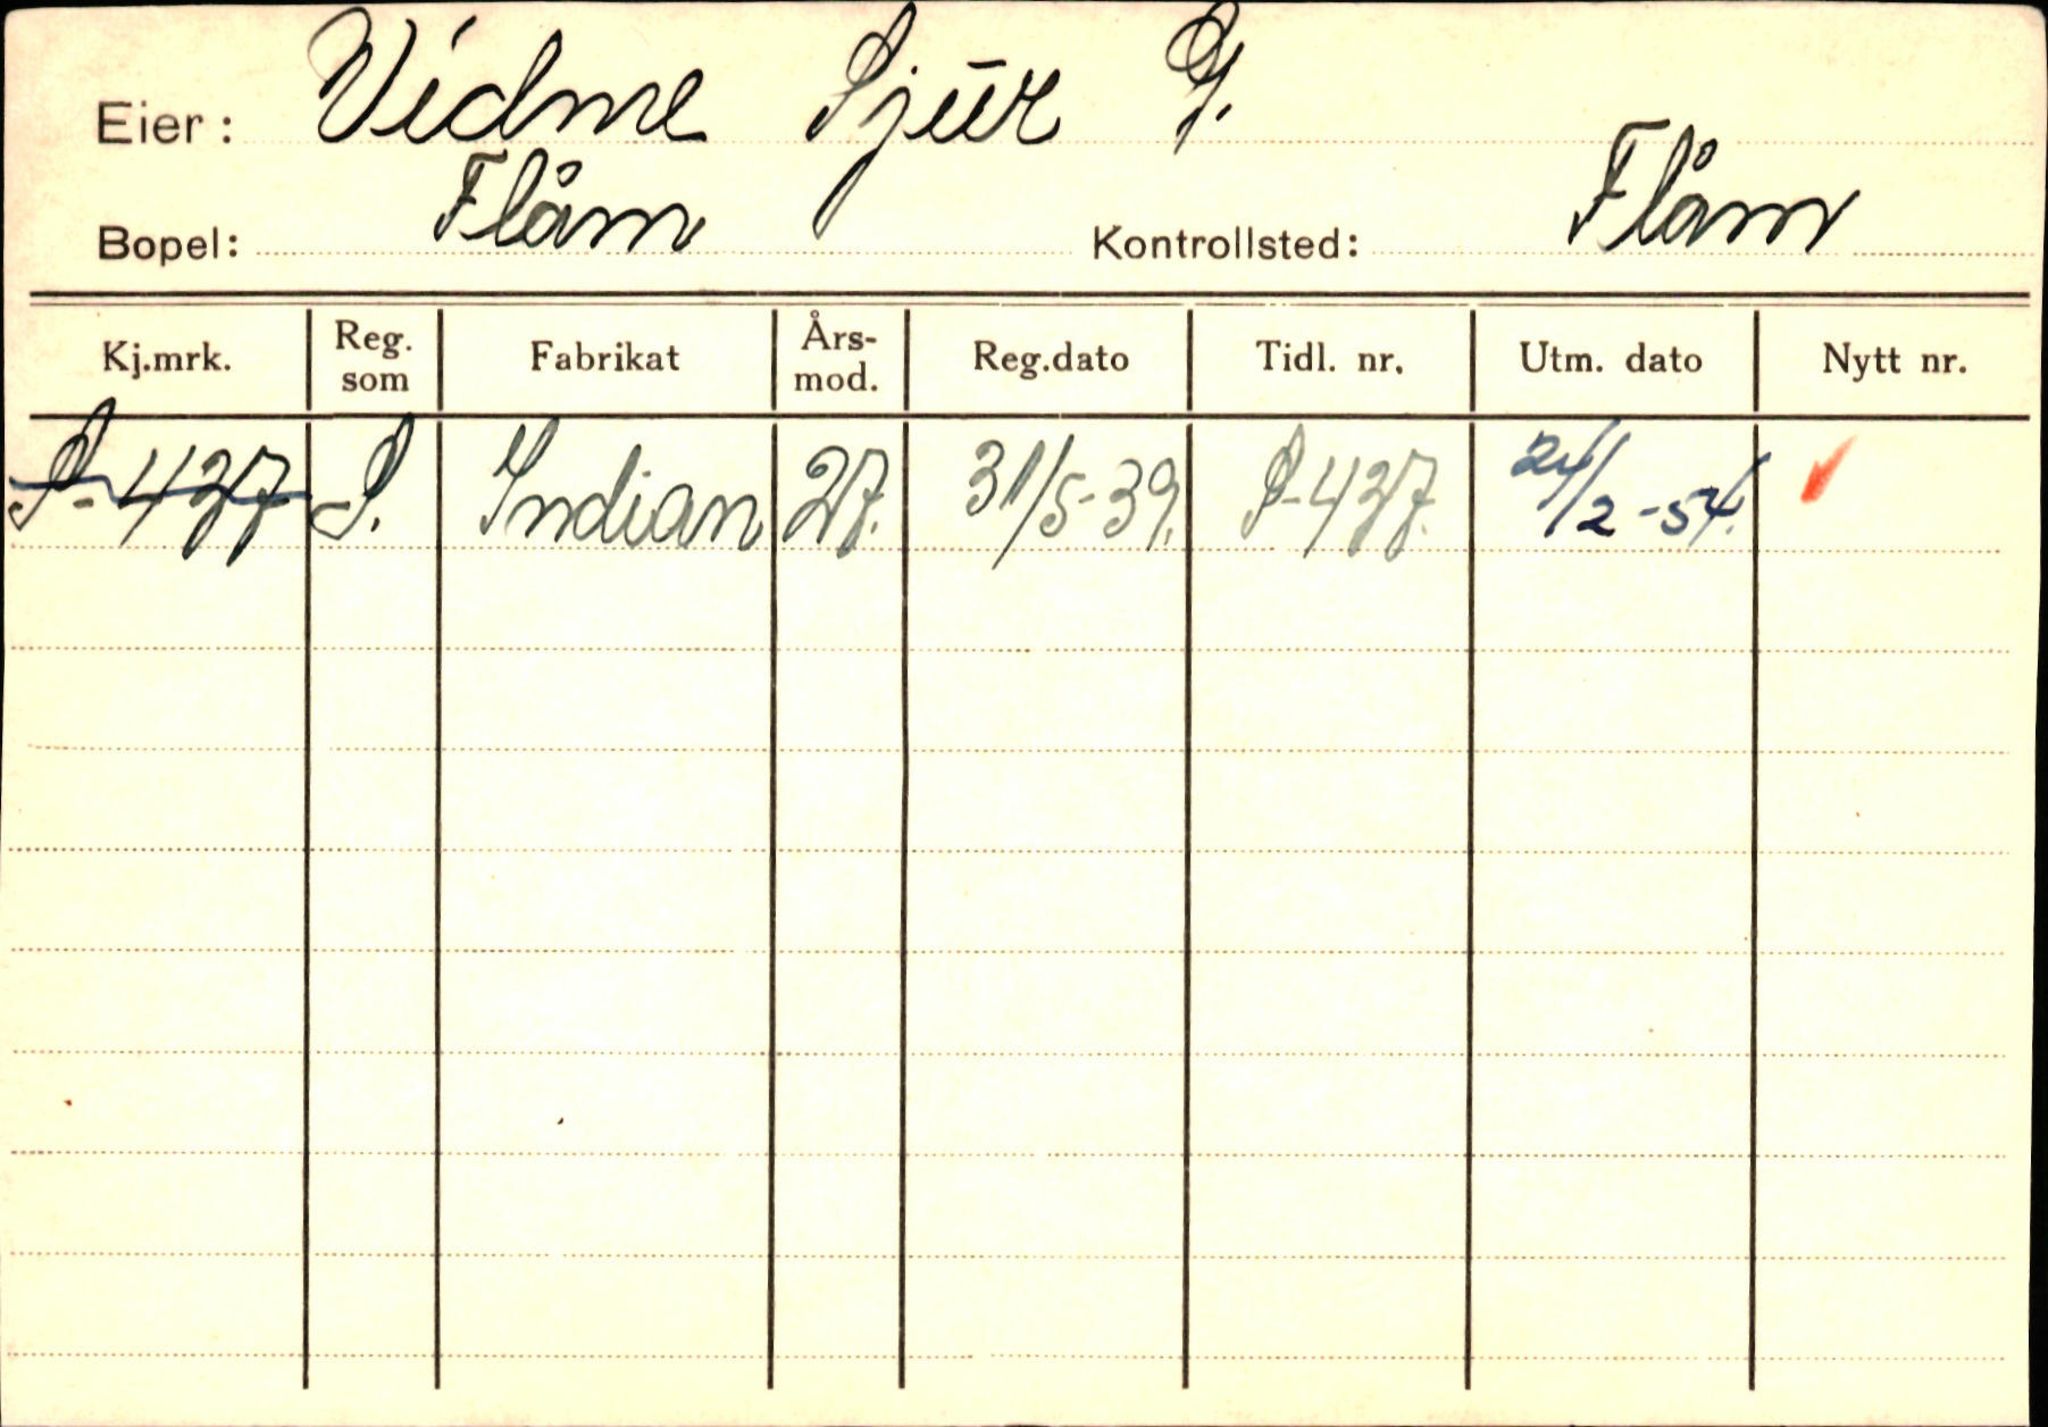 Eier: Vidme Sjur
Bopel: Flåm Kontrollsted: Flåm
Kj.mrk. Reg. som Fabrikat Års-mod. Reg.dato Tidl. nr. Utm. dato Nytt nr.
S-437 S. Indian 27. 31/5-39. S-437. 24/2-54.